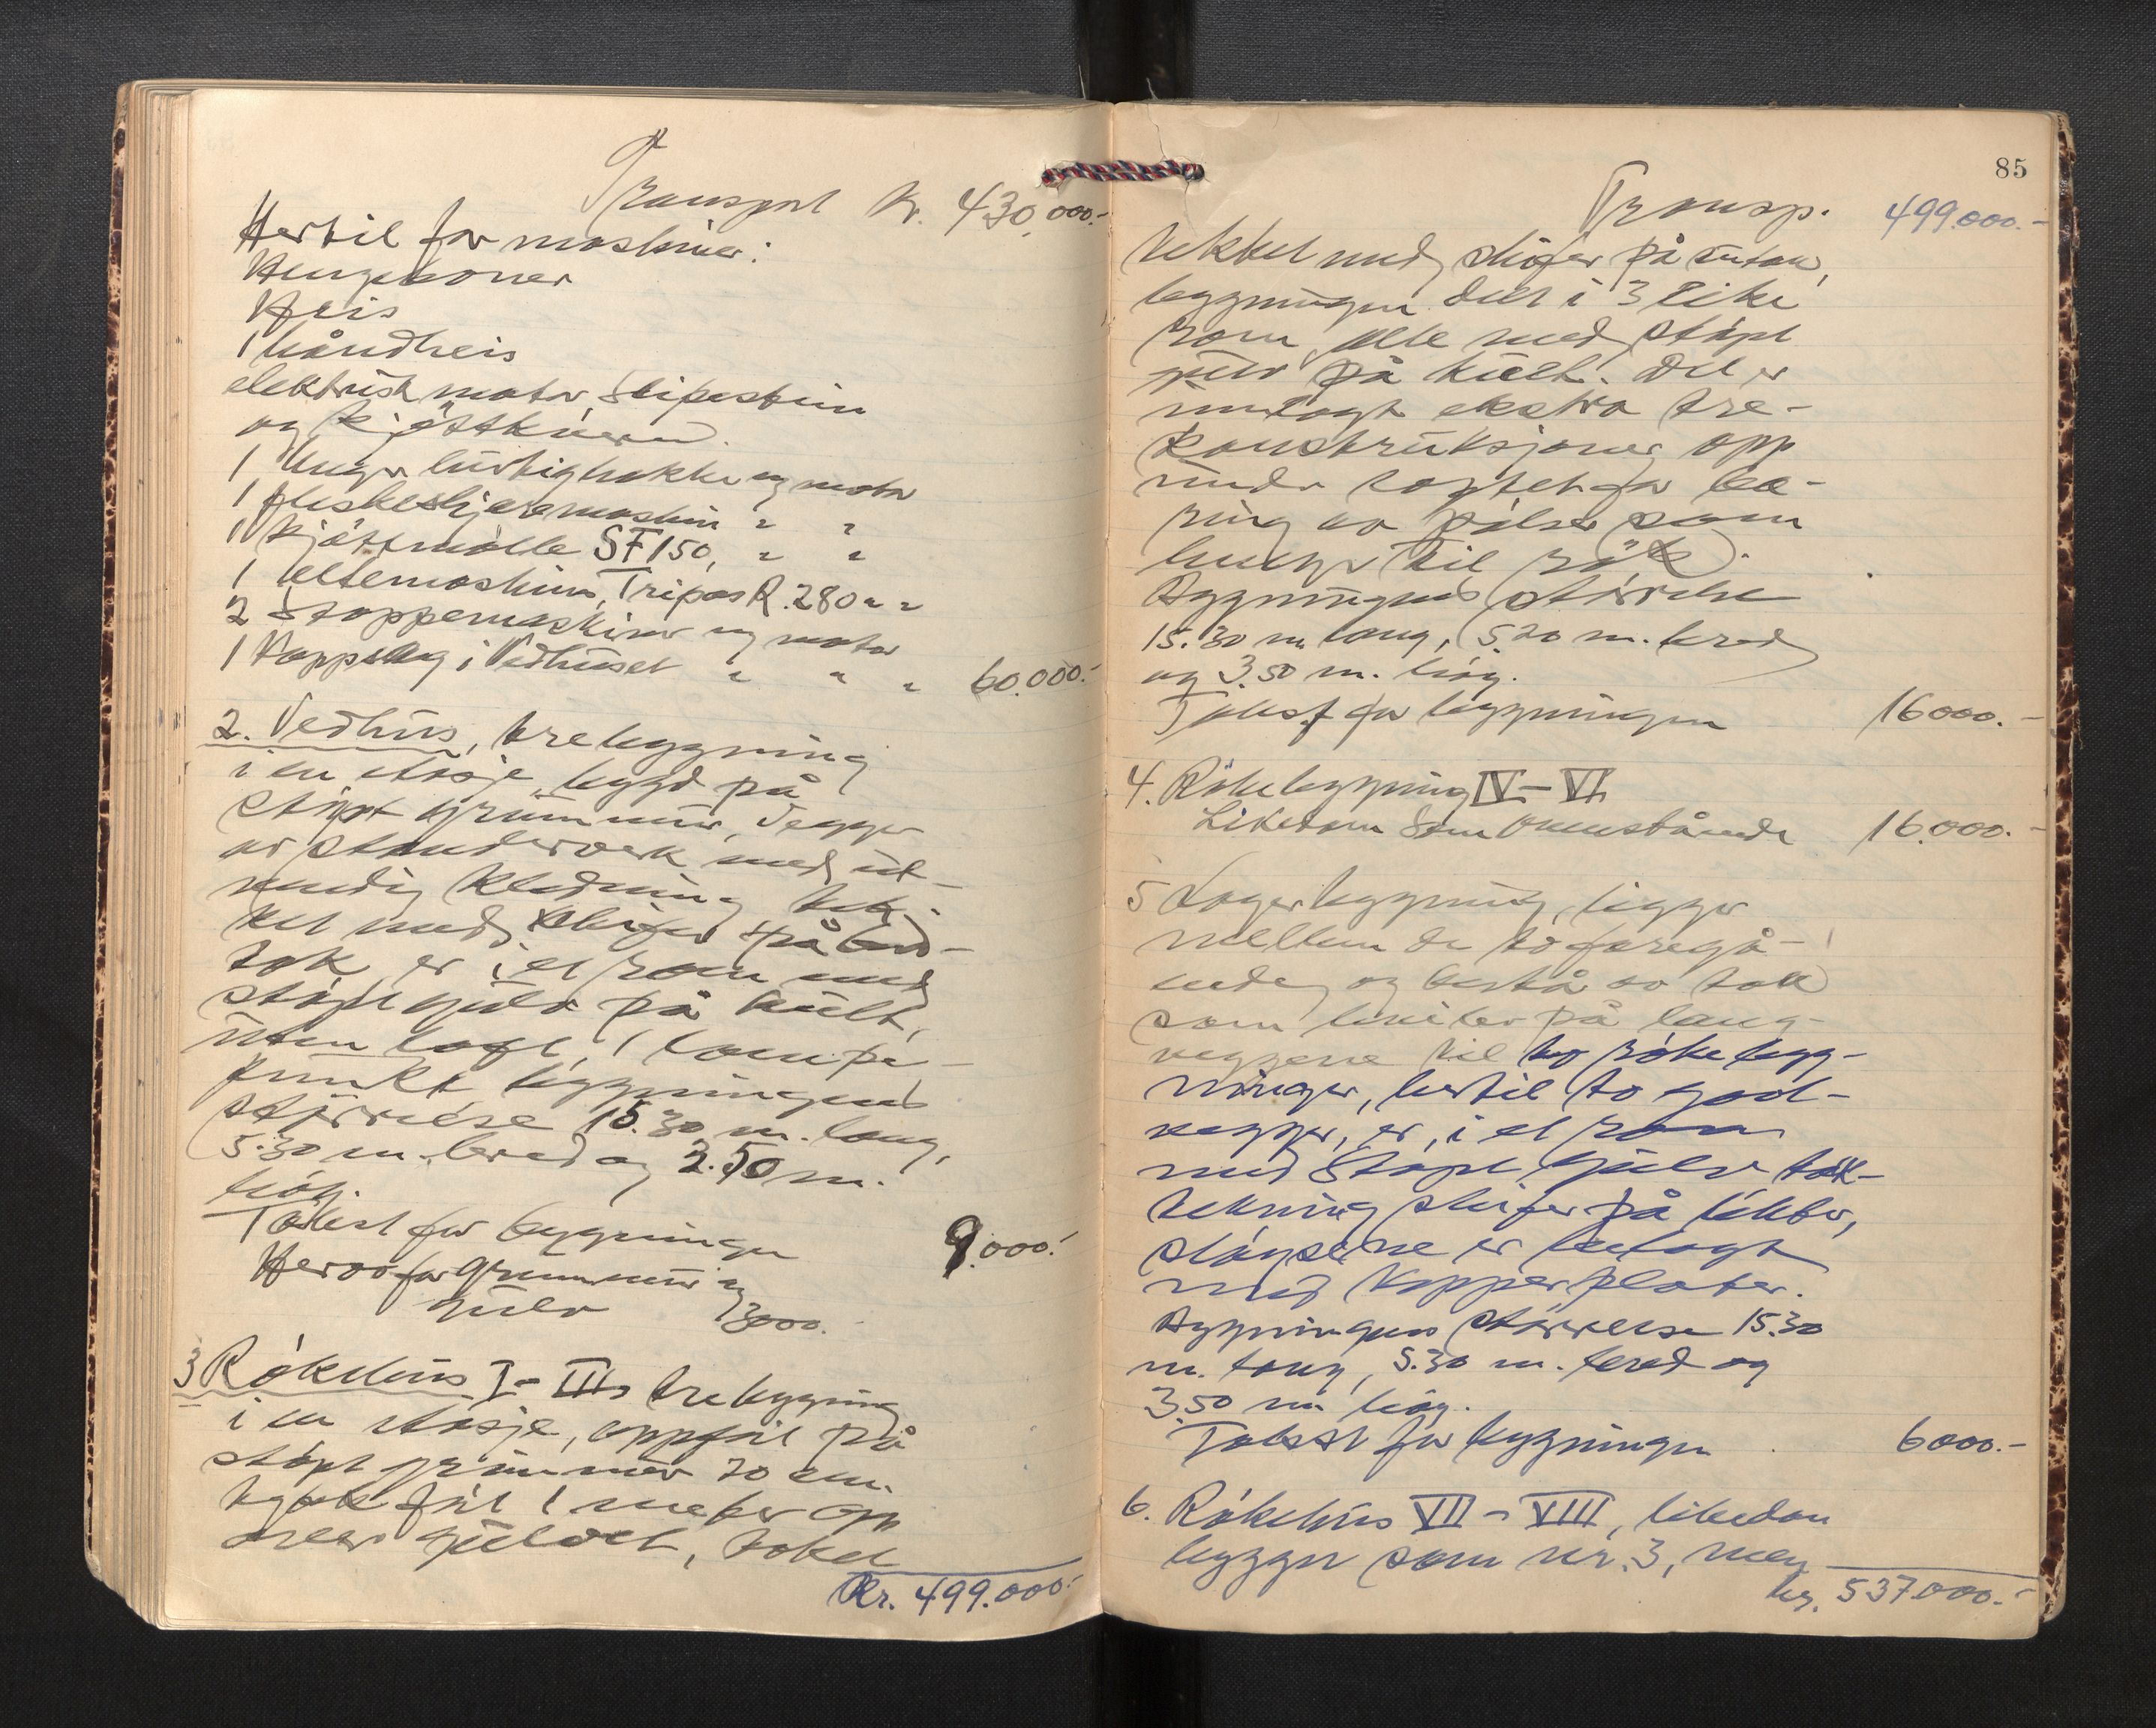 Transport Kr. 430.000.-
Hertil for maskiner:
Hengebaner
Heis
1 håndheis
elektrisk motor, slipestein
og kjöttkvern.
1 Unger hurtighakke og motor
1 fleskeskjæremaskin " "
1 kjöttmölle SF 150, " "
1 eltemaskin, Tripas R. 280 " "
2 stoppemaskiner og motor
1 Kappsag i Vedhuset " " " 60.000.-
2. Vedhus, trebygning
i en etasje, bygd på
stöpt grunnmur, Vegger
av stenderverk med ut-
vendig kledning tek-
ket med skifer på bord-
tak, er i et rom med
stöpt gulv på kult,
uten loft, 1 lampe-
punkt bygningens
störrelse 15.30 m. lang,
5.30 m. bred og 2.50 m.
höy.
Takst for bygningen 9.000.-
Herav for grunnmur og
gulv 3000.
3 Rökehus I - III, trebygning
i en etasje, oppfört på
stöpt grunnmur 20 cm.
tykk fört 1 meter opp
over gulvet, taket
Kr. 499.000.-
85
Transp. 499.000.-
tekket med skifer på sutak,
bygningen delt i 3 like
rom, alle med stöpt
gulv på kult. Det er
innlagt ekstra tre-
konstruksjoner opp
under loftet for bæ-
ring av pölser som
henger til rök.
Bygningens störrelse
15.30 m lang, 5.20 m. bred
og 3.50 m. höy.
Takst for bygningen 16000.-
4. Rökebygning IV - VI
Likedan som ovenstående 16.000.-
5 Lagerbygning, ligger
mellem de to foregå-
ende, og består av tak
som hviler på lang-
veggene til to rökebyg-
ninger, hertil to gavl-
vegger, er i et rom
med stöpt gulv tak-
tekning skifer på lekter,
med kopperplater.
Bygningens störrelse 15.30
m. lang, 5.30 m. bred og
3.50 m höy.
Takst for bygningen 6000.-
6. Rökehus VII - VIII, likedan
bygger som nr. 3, men
kr. 537.000.-